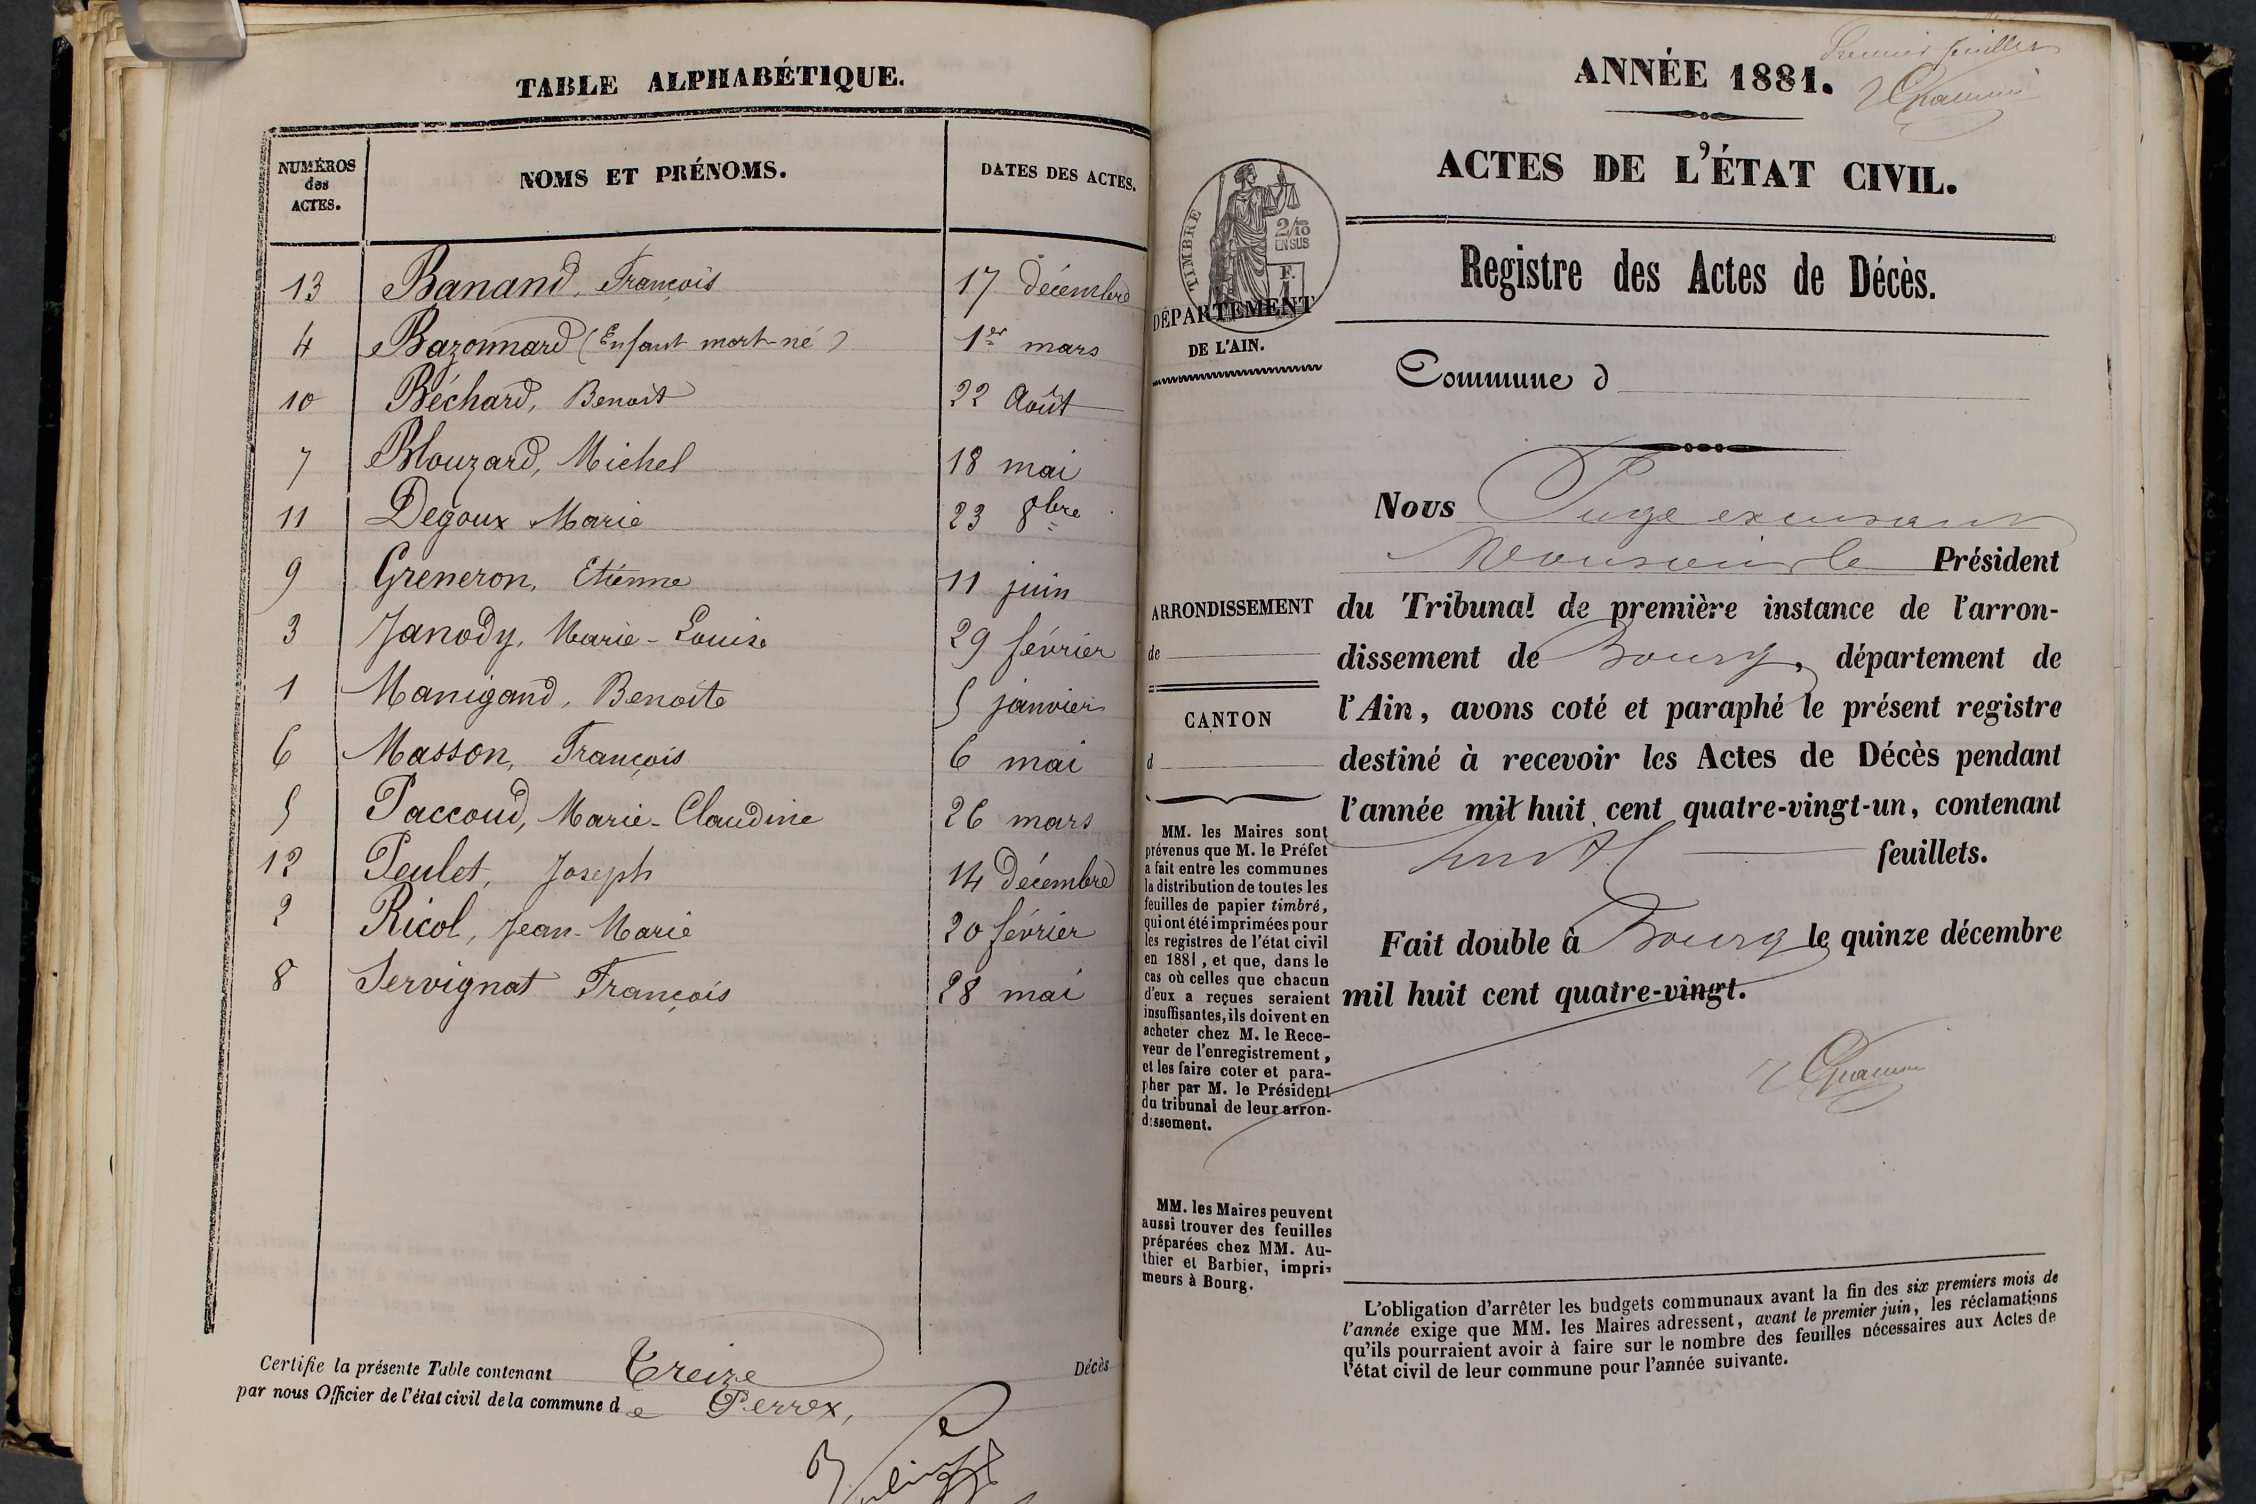 TABLE ALPHABÉTIQUE.
NUMÉROS des ACTES.
NOMS ET PRÉNOMS.
DATES DES ACTES.
13 Banand, François 17 décembre
4 Bazonnard (Enfant mort-né) 1er mars
10 Béchard, Benoit 22 Août
7 Blouzard, Michel 18 mai
11 Degoux Marie 23 8bre
9 Greneron, Etienne 11 juin
3 Janody, Marie-Louise 29 février
1 Manigand, Benoite 5 janvier
6 Masson, François 6 mai
5 Paccoud, Marie-Claudine 26 mars
12 Peulet, Joseph 14 décembre
2 Ricol, Jean-Marie 20 février
8 Servignat François 28 mai
Certifie la présente Table contenant Treize Décès
par nous Officier de l'état civil de la commune de Perrex,
Premier feuillet
ANNÉE 1881.
ACTES DE L'ÉTAT CIVIL.
TIMBRE
2/10
EN SUS
F.
DÉPARTEMENT
DE L'AIN.
Registre des Actes de Décès.
Commune d
Nous Juge excusant
Monsieur le Président
du Tribunal de première instance de l'arron-
dissement de Bourg, département de
l'Ain, avons coté et paraphé le présent registre
destiné à recevoir les Actes de Décès pendant
l'année mil huit cent quatre-vingt-un, contenant
huit feuillets.
Fait double à Bourg le quinze décembre
mil huit cent quatre-vingt.
ARRONDISSEMENT
de
CANTON
d
MM. les Maires sont
prévenus que M. le Préfet
a fait entre les communes
la distribution de toutes les
feuilles de papier timbré,
qui ont été imprimées pour
les registres de l'état civil
en 1881, et que, dans le
cas où celles que chacun
d'eux a reçues seraient
insuffisantes, ils doivent en
acheter chez M. le Rece-
veur de l'enregistrement,
et les faire coter et para-
pher par M. le Président
du tribunal de leur arron-
dissement.
MM. les Maires peuvent
aussi trouver des feuilles
préparées chez MM. Au-
thier et Barbier, impri-
meurs à Bourg.
L'obligation d'arrêter les budgets communaux avant la fin des six premiers mois de
l'année exige que MM. les Maires adressent, avant le premier juin, les réclamations
qu'ils pourraient avoir à faire sur le nombre des feuilles nécessaires aux Actes de
l'état civil de leur commune pour l'année suivante.